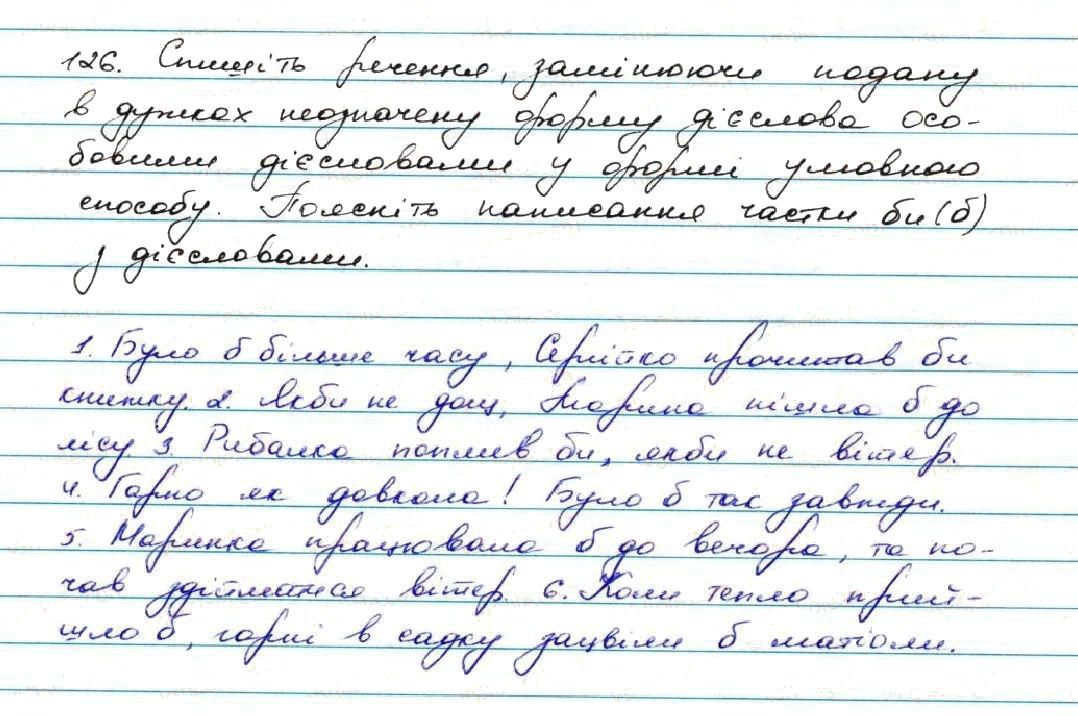 126. Спишіть речення, замінюючи подану
в дужках неозначену форму дієслова осо-
бовими дієсловами у формі умовного
способу. Поясніть написання частки би (б)
з дієсловами.
1. Було б більше часу, Сергійко прочитав би
книжку. 2. Якби не дощ, Марина пішла б до
лісу. 3. Рибалка поплив би, якби не вітер.
4. Гарно як довкола! Було б так завжди.
5. Маринка працювала б до вечора, та по-
чав здійматися вітер. 6. Коли тепло прий-
шло б, гарні в садку зацвіли б матіоли.